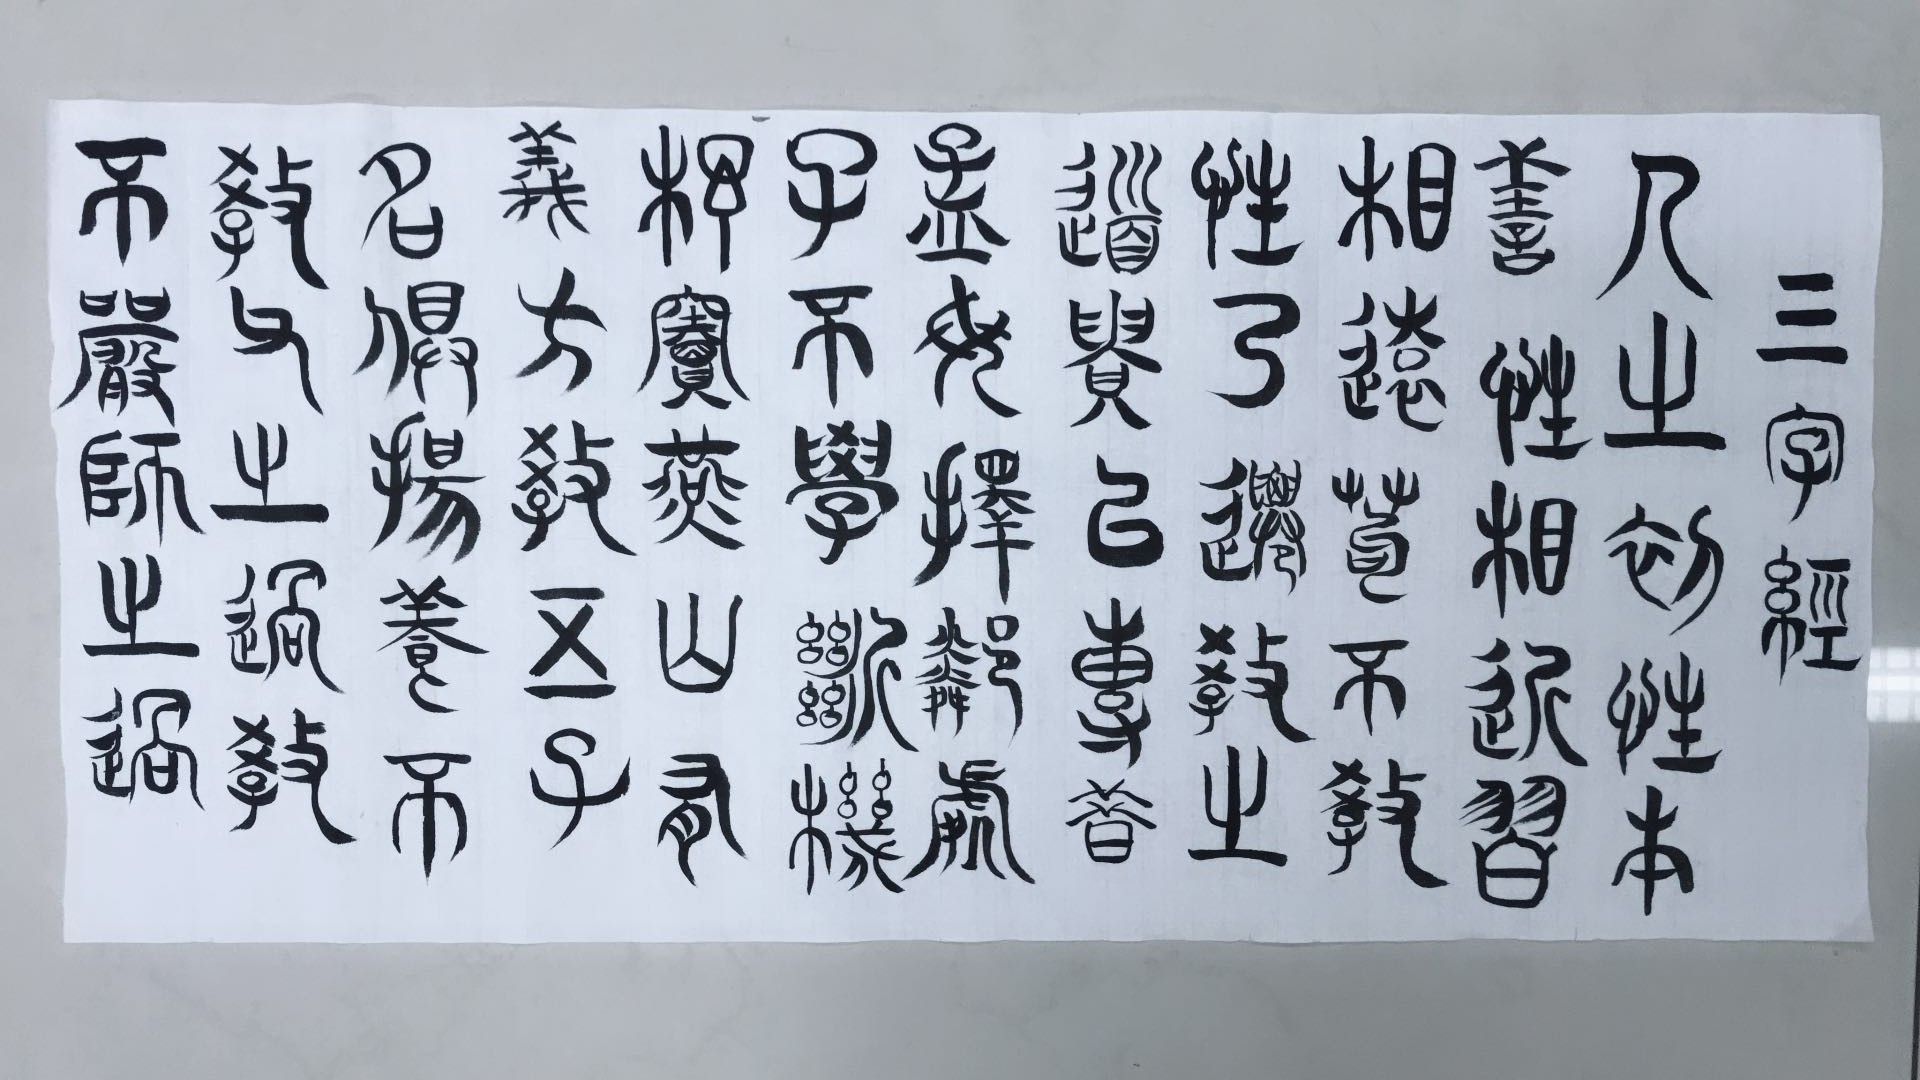 三字經
人之初性本
善性相近習
相遠苟不教
性乃遷教之
道貴以專昔
孟母擇鄰處
子不學斷機
杼竇燕山有
義方教五子
名俱揚養不
教父之過教
不嚴師之過